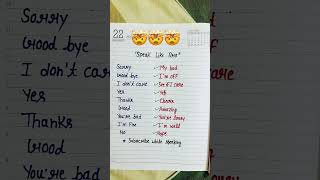 22
"Speak Like Pro"
Sorry - My bad
Good bye - I'm off
I don't care - See if I care
Yes - Yeb
Thanks - Cheers
Good - Amazing
You're bad - You're lousy
I'm Fine - I'm well
No - Nope
* Subscribe while
Sorry
Good bye
I don't care
Yes
Thanks
Good
You're bad